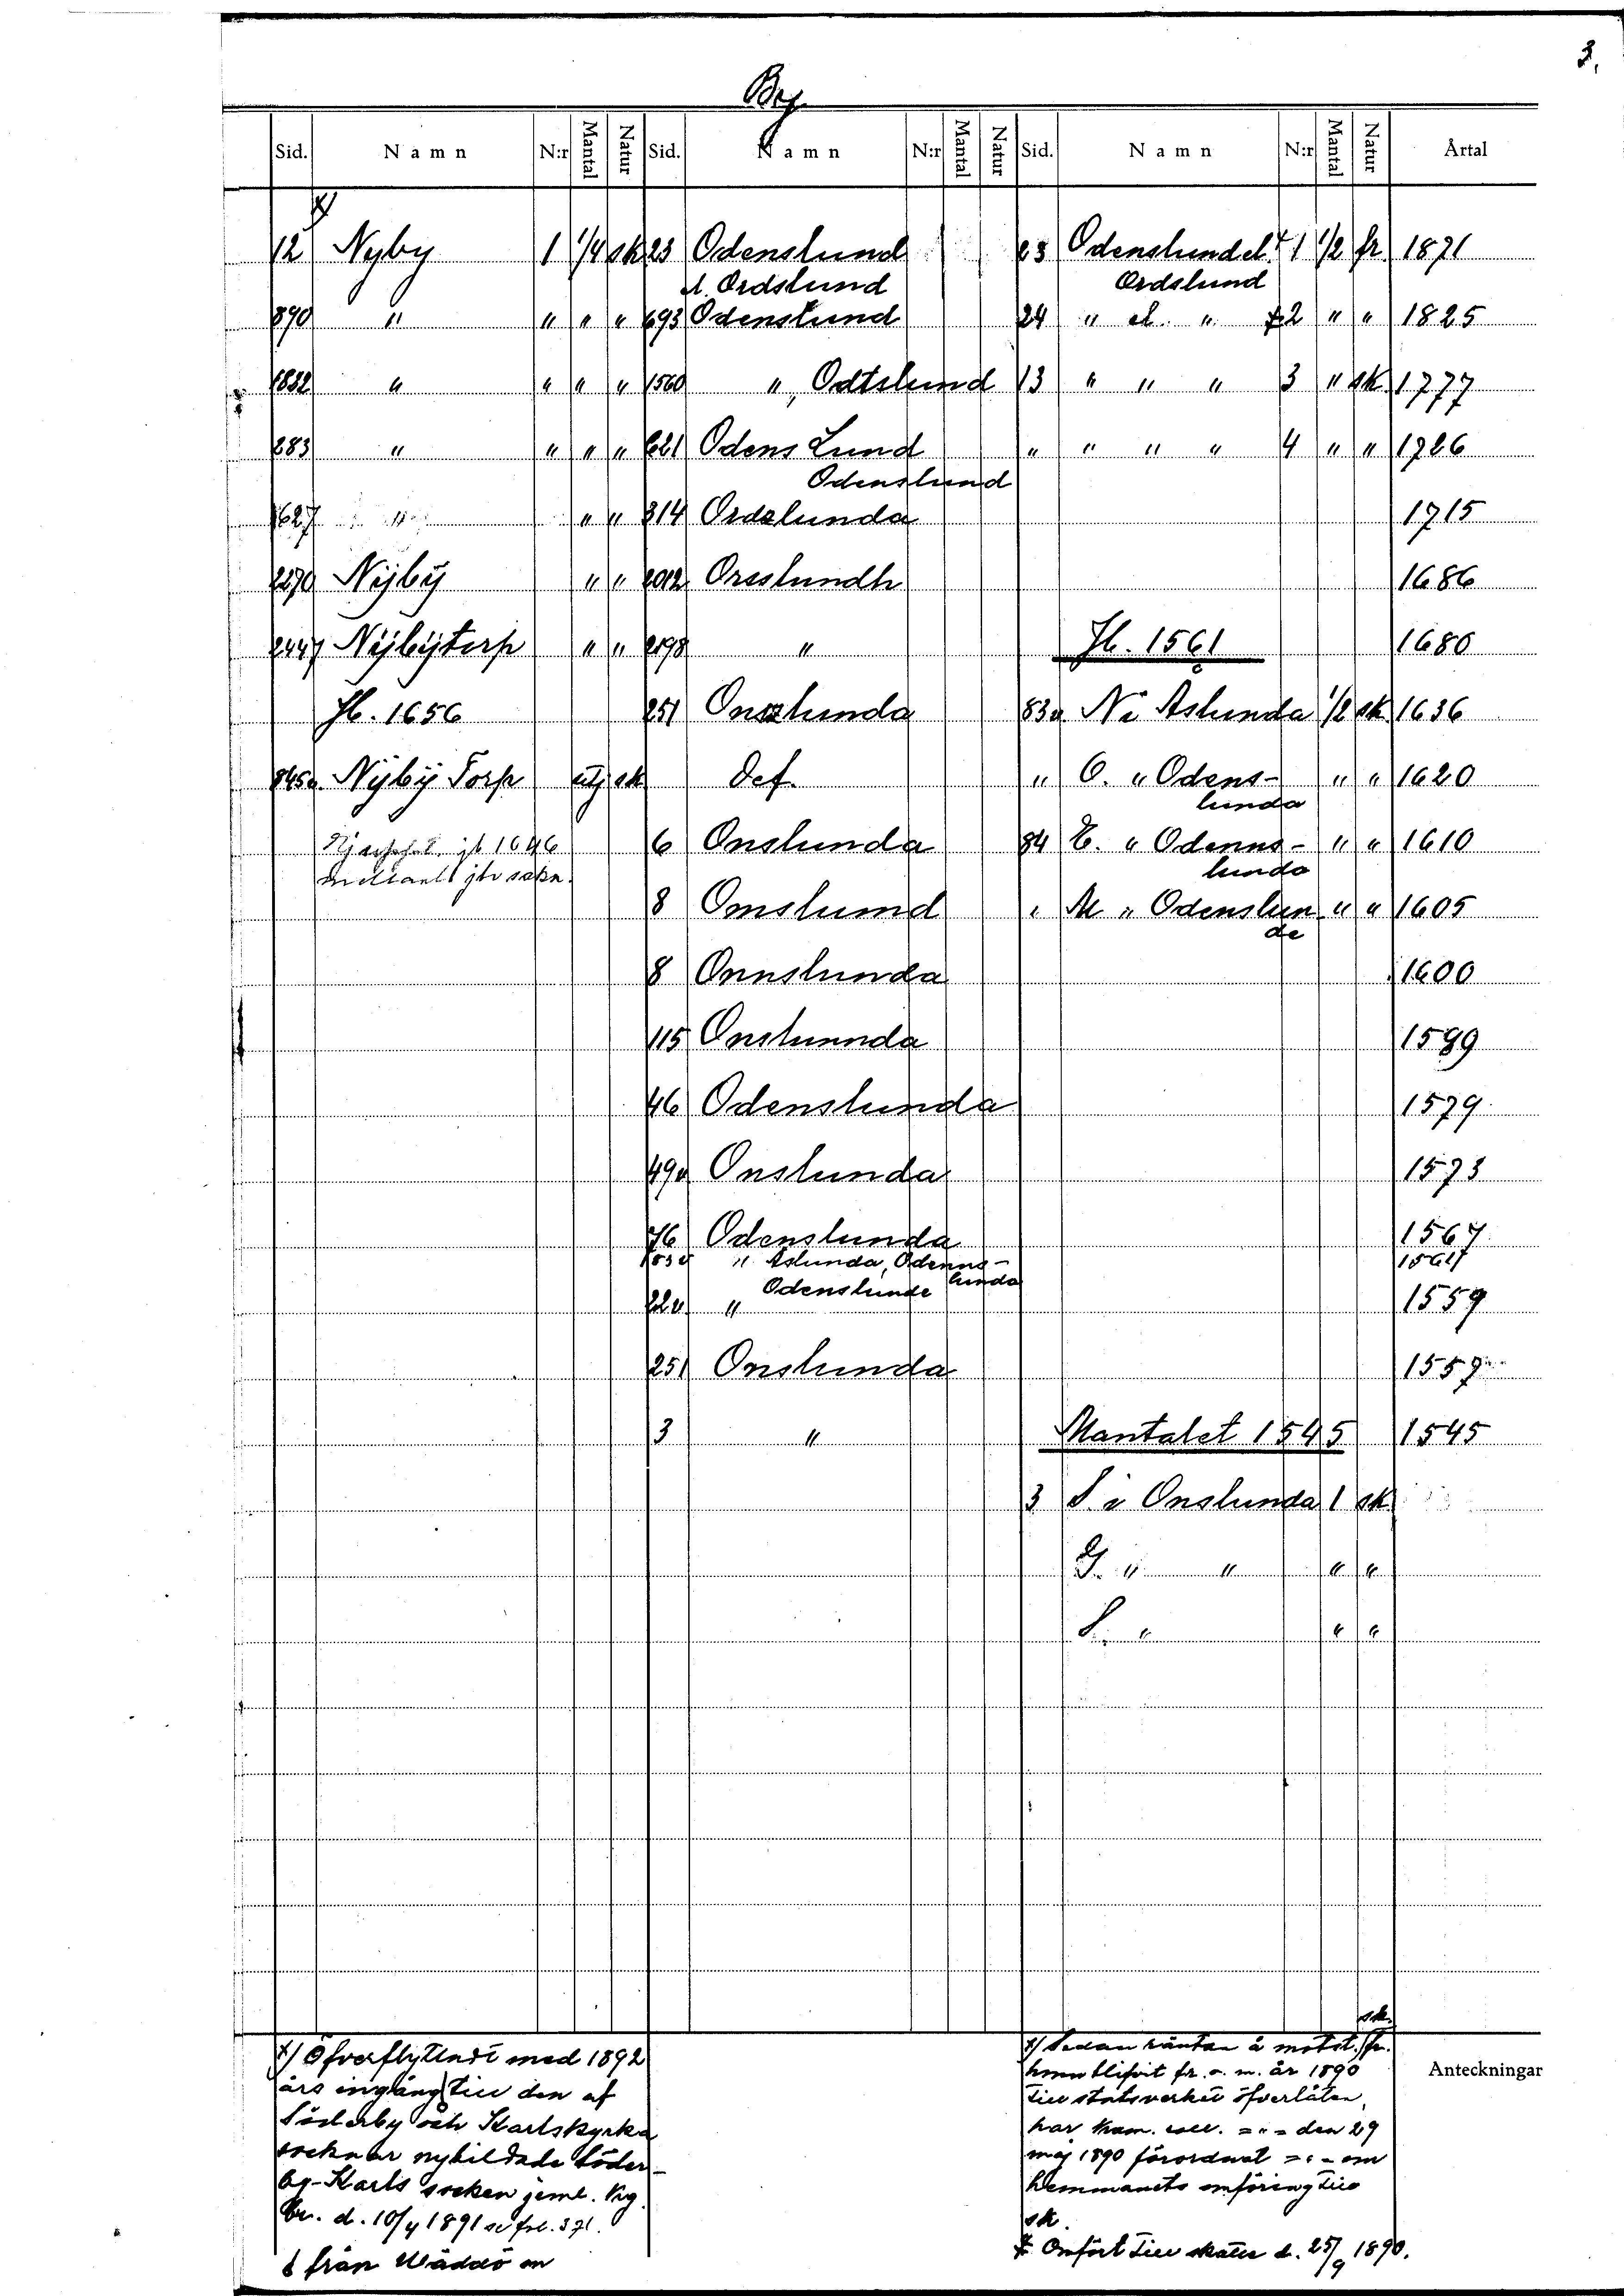 3.
Sid. Namn N:r Mantal Natur Sid. Namn N:r Mantal Natur Sid. Namn N:r Mantal Natur Årtal
12 Nyby 1 1/4 sk 23 Odenslund 23 Odenslund el. 1 1/2 fr 1871
Ordslund Ordslund
890 " " " " 693 Odenslund 24 " el. " 2 " " 1825
1832 " " " " 1560 ", Odtslund 13 " " " 3 " sk 1777
883 " " " " 621 Odens Lund " " " " 4 " " 1726
Odenslund
1627 " " " 314 Ordslunda 1715
2270 Nijbÿ " " 2012 Orsslundh 1686
2447 Nijbÿtorp " " 2198 " Jb. 1561 1680
Jb. 1656 251 Onszlunda 83v Ni Aslunda 1/2 sk 1636
845v Nijbÿ Torp utj sk Def. " O. " Odens- " " 1620
lunda
jb 1646 6 Onslunda 84 E. " Odenns- " " 1610
lunda
8 Omslumd " M " Odenslun " " 1605
de
8 Onnslunda 1600
115 Onslunnda 1599
46 Odenslunda 1579
49v Onslunda 1573
76 Odenslunda 1567
83v " Aslunda, Odenns- 1561
lunda
Odenslunde
" 1559
251 Onslunda 1557
3 " Mantalet 1545 1545
3 S i Onslunda 1 sk
G. " " " "
L. " " "
sk.
x) Öfverflyttadt med 1892
års ingång till den af
Söderby och Karlskyrka
socknar nybildade Söder-
by-Karls socken jeml. Kg.
Br. d. 10/4 1891 se fol. 371.
från Wäddö
x) Sedan räntan å motst. fr.
hemn blifvit fr. o. m. år 1890
till statsverket öfverlåten,
har Kam. coll. =''= den 29
maj 1890 förordnat =''= om
hemmanets omföring till
sk.
‡ Omfört till skatte d. 25/9 1890.
Anteckningar